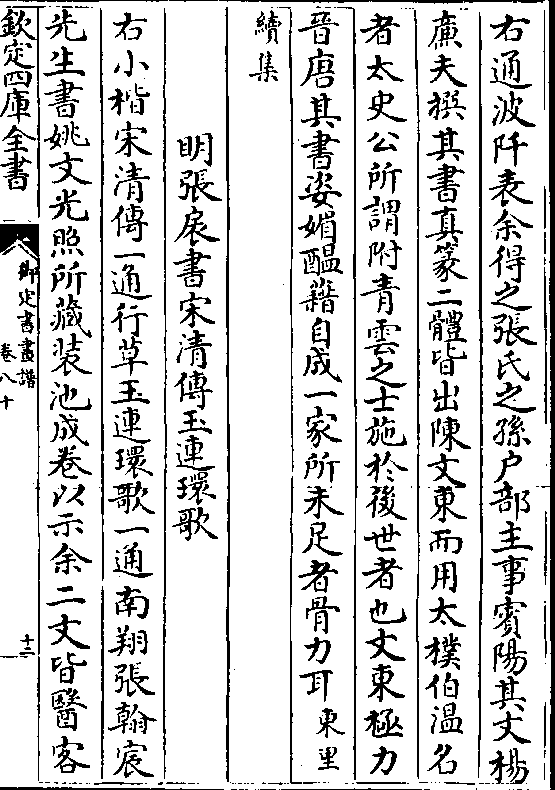 右通波阡表余得之張氏之孫户部主事賓陽其文楊
亷夫撰其書真篆二體皆出陳文東而用太樸伯温名
者太史公所謂附青雲之士施於後世者也文東極力
晉唐其書姿媚醖藉自成一家所未足者骨力耳東里
續集
明張扆書宋清傳玉連環歌
右小楷宋清傳一通行草玉連環歌一通南翔張翰宸
先生書姚文光照所藏装池成卷以示余二文皆醫客
欽定四庫全書
御定書畫譜
卷八十
十三